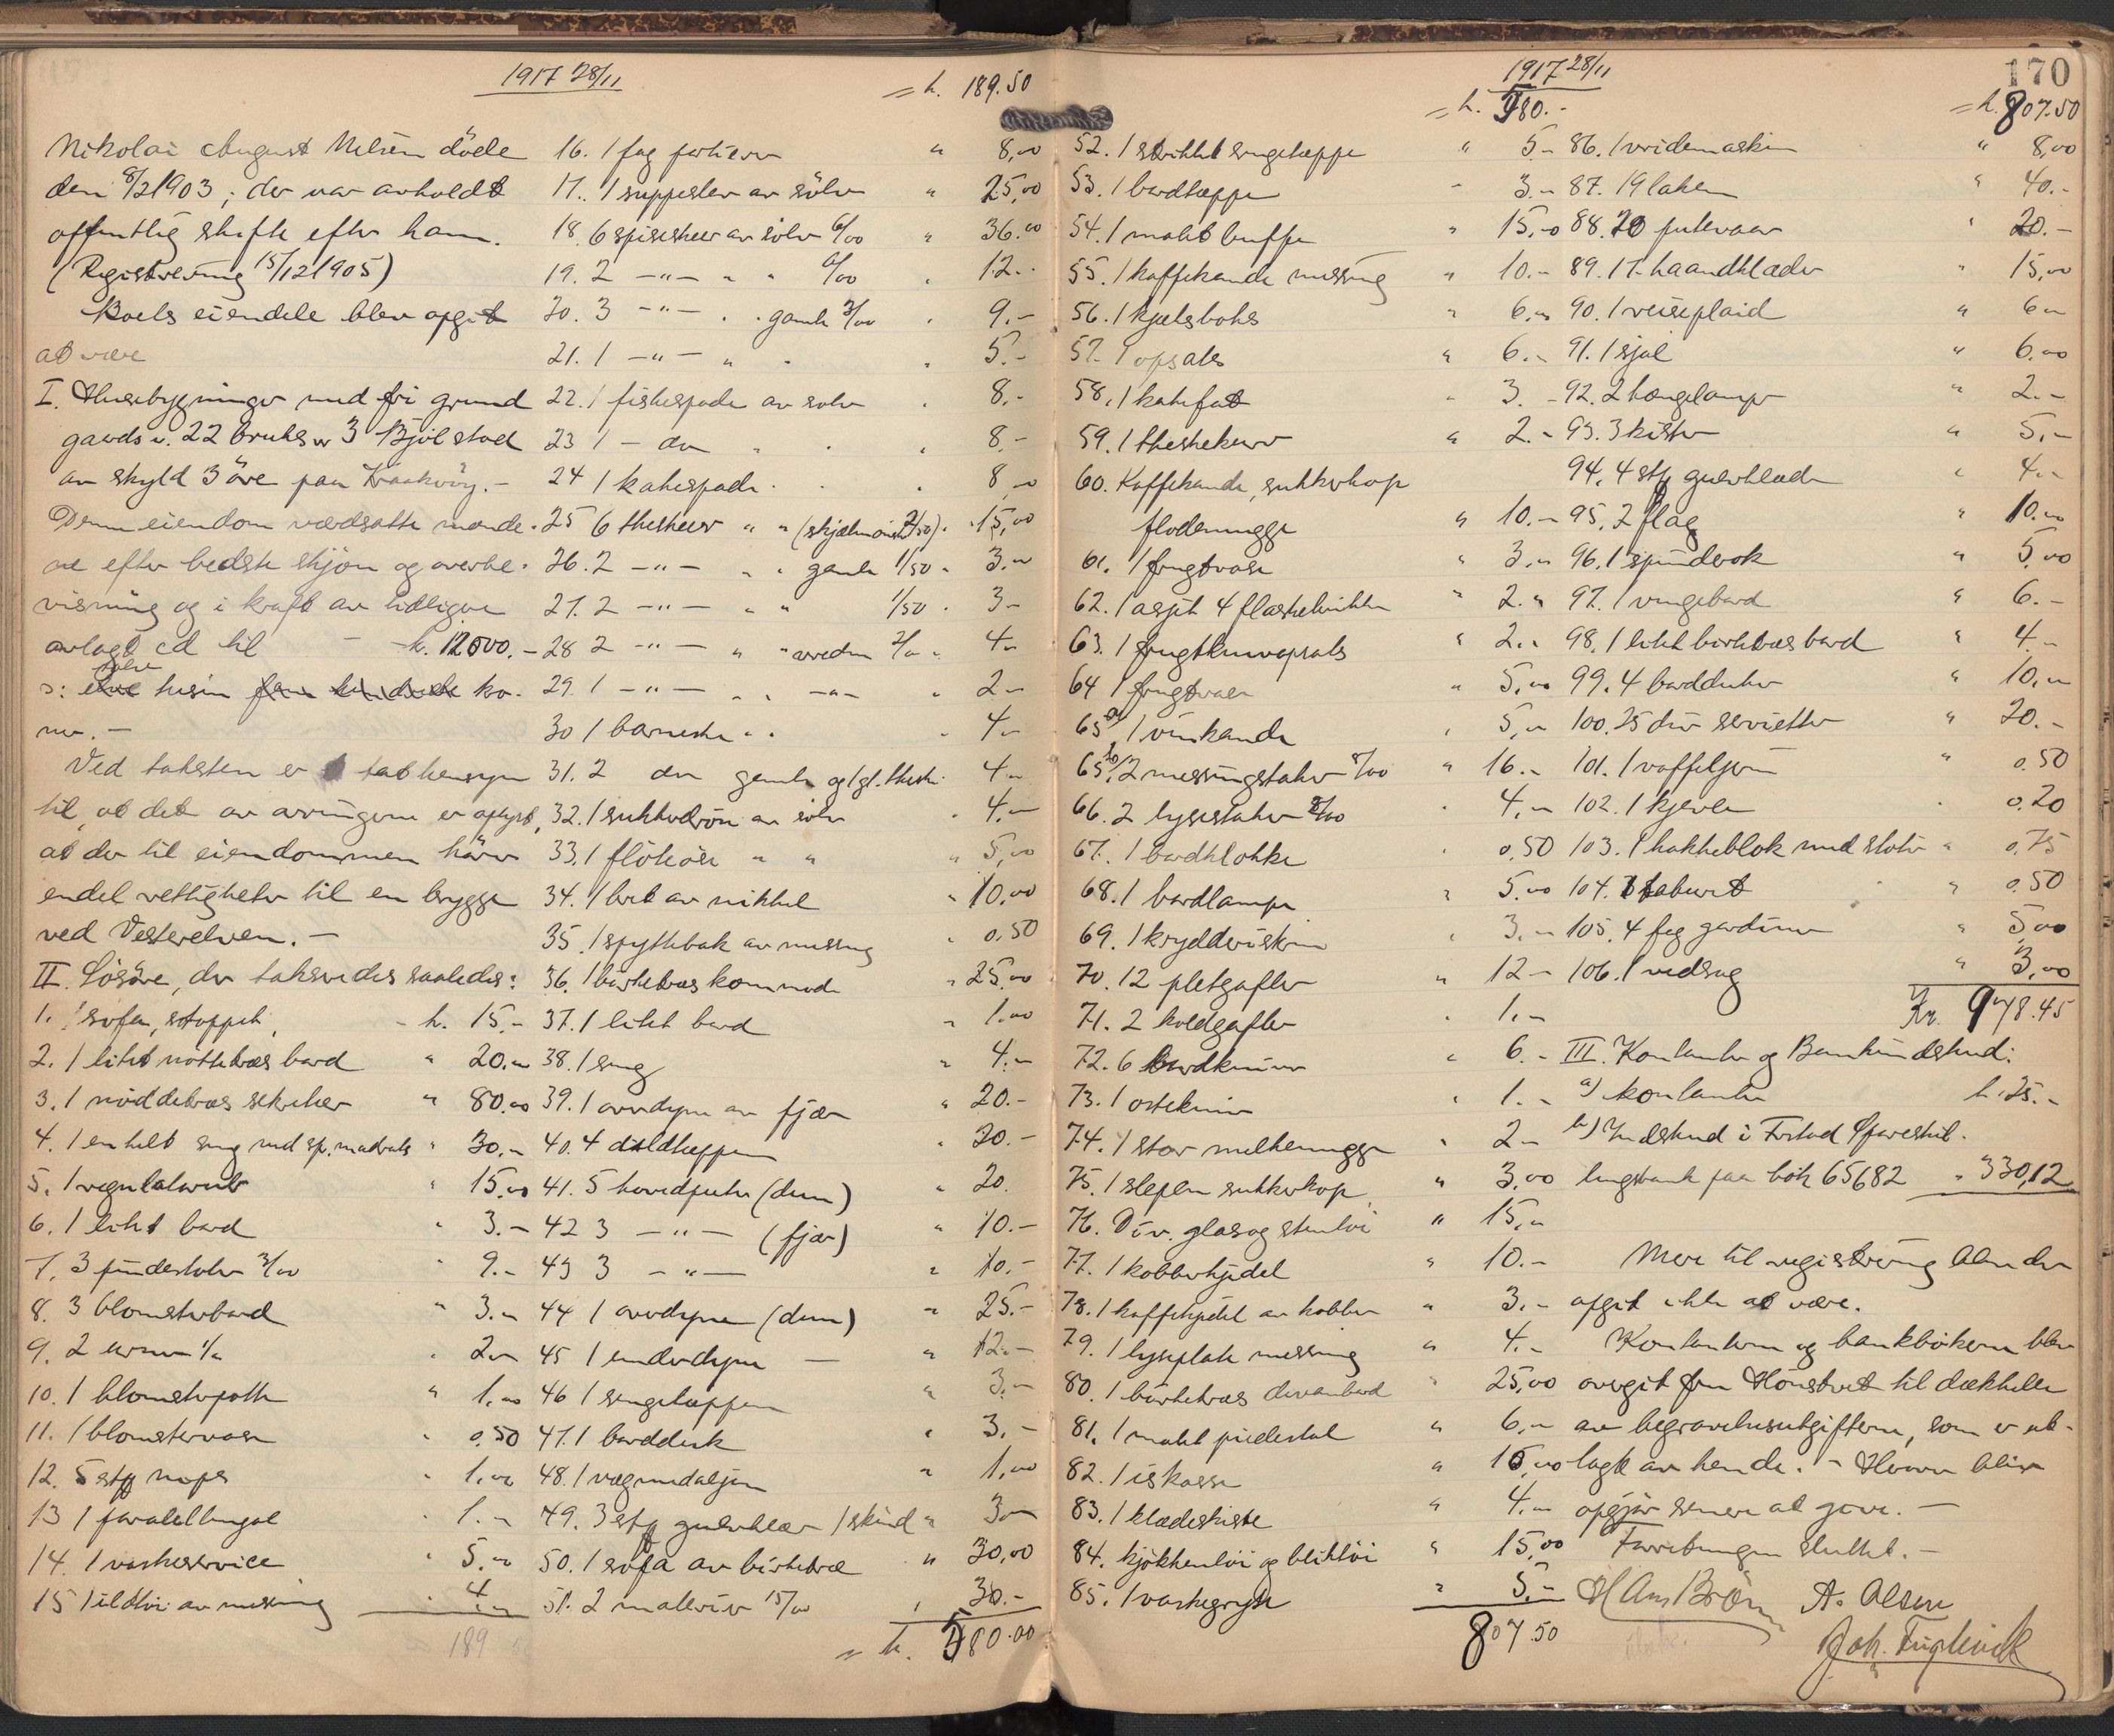 1917 28/11
Nikolai August Nilsen döde
den 8/2 1903; der var avholdt
offentlig skifte efter ham.
(Registrering 15/12 1905)
Boets eiendele blev opgit
at være
I. Husebygninger med fri grund
gaards n. 22 bruks nr 3 Bjölstad
av skyld 3 öre paa Kraakröy.-
Denne eiendom værdsatte mænde-
ne efter bedste skjön og overbe-
visning og i kraft av tidligere
avlagt ed til - k. 12000.-
ɔ: tolv tusin kro-
ner.-
Ved taksten er tat hensyn
til, at det av arvingerne er oplyst,
at der til eiendommen hörer
endel rettigheter til en brygge
ved Vesterelven.-
II. Lösöre, der taksredes saaledes:
1. 1 sofa, stoppet, - k. 15.-
2. 1 litet nöttetræs bord " 20.-
3. 1 nöddetræs sekretær " 80.00
4. 1 enkelt seng med sp. madrats " 30.-
5. 1 regulatorur " 15.00
6. 1 litet bord " 3.-
7. 3 pindestoler 3/00 " 9.-
8. 3 blomsterbord " 3.-
9. 2 urner 1/- " 2.-
10. 1 blomsterpotte " 1.00
11. 1 blomstervase " 0.50
12. 5 stk nips " 1.00
13 1 paralellengal " 1.-
14. 1 vaskeservice " 5.00
15 1 ildtöi av messing " 4.-
189
= k. 189.50
16. 1 fag portierer " 8,00
17. 1 suppeslev av sölv " 25,00
18. 6 spiseskeer av sölv 6/00 " 36.00
19. 2 -"- " " 6/00 " 12.-
20. 3 -"- " " gamle 3/00 " 9.-
21. 1 -"- " " " 5.-
22. 1 fiskespade av sölv " 8.-
23 1 - do " " " 8.-
24 1 kakespade " " " 8.00
25 6 theskeer " " (skjælmönst. 2/50) " 15,00
26. 2 -"- " " gamle 1/50 " 3.00
27. 2 -"- " " 1/50 " 3-
28 2 -"- " " arveden 2/- " 4.-
29. 1 -"- " " -"- " 2-
30 1 barneske " " " 4.-
31. 2 do gamle og 1 gl. theske 4.-
32. 1 sukkerdrön av sölv " 4.-
33. 1 flöteöse " " " 5,00
34. 1 bret av nikkel " 10,00
35. 1 spyttebak av messing " 0,50
36. 1 birketræs kommode " 25.00
37. 1 litet bord " 1.00
38. 1 seng " 4.-
39. 1 overdyne av fjær " 20.-
40. 4 uldtepper " 20.-
41. 5 hovedputer (dun) " 20.
42 3 -"- (fjær) " 10.-
43 3 -"- " 10.-
44 1 overdyne (dun) " 25.-
45 1 underdyne - " 12.-
46 1 sengeteppe " 3.-
47. 1 borddisk " 3.-
48. 1 vægmedaljon " 1,00
49. 3 stk gulvklær 1 skind " 3.-
50. 1 sofa av birketræ " 30,00
51. 2 malerier 15/00 " 30.-
= k. 580.00
1917 28/11
= k. 580.-
52. 1 strikket sengeteppe " 5.-
53. 1 bordteppe " 3.-
54. 1 malet buffe " 15.00
55. 1 kaffekande messing " 10.-
56. 1 kjæksboks " 6.00
57. 1 opsats " 6.-
58. 1 kakefat " 3.-
59. 1 theskekurv " 2.-
60. Kaffekande, sukkerkop
flödemugge " 10.-
61. 1 frugtvase " 3.-
62. 1 asjet 4 flaskebrikker " 2.-
63. 1 frugtknivopsats " 2.-
64 1 frugtvase " 5.00
65 a) 1 vinkande " 5,00
65 b) 2 messingstaker 8/00 " 16.-
66. 2 lysestaker 2/00 " 4,-
67. 1 bordklokke " 0,50
68. 1 bordlampe " 5.00
69. 1 krydderiskrin " 3.-
70. 12 pletgafler " 12-
71. 2 koldgafler " 1.-
72. 6 bordkniver " 6.-
73. 1 ostekniv " 1.-
74. 1 stor melkemugge " 2-
75. 1 slepen sukkerkop " 3.00
76. Div. glas og stentöi " 15.-
77. 1 kobberkjedel " 10.-
78. 1 kaffekjedel av kobber " 3.-
79. 1 lyseplate messing " 4.-
80. 1 birketræs divanbord " 25,00
81. 1 malet piedestal " 6.-
82. 1 iskasse " 10,00
83. 1 klædeskiste " 4.-
84. kjökkentöi og bliktöi " 15,00
85. 1 vaskegryte " 5.-
807.50
170
= k. 807.50
86. 1 vridemaskin " 8,00
87. 19 laken " 40.-
88. 20 putevaar " 20.-
89. 17 haandklæder " 15,00
90. 1 reiseplaid " 6-
91. 1 sjal " 6.00
92. 2 hengelamper " 2.-
93. 3 kister " 5,-
94. 4 stk gulvklæde " 4.-
95. 2 flag " 10.00
96. 1 spinderok " 5,00
97. 1 vingebord " 6.-
98. 1 litet birketræs bord " 4.-
99. 4 bordduker " 10,-
100. 25 div servietter " 20.-
101. 1 vaffeljern " 0.50
102. 1 kjevle " 0,20
103. 1 hakkeblok med stativ " 0,75
104. 1 taburet " 0.50
105. 4 fag gardiner " 5,00
106. 1 vedsag " 3,00
Kr. 978.45
III. Kontanter og Bankindskud:
a) kontanter k. 25.-
b) Indskud i F.stad Spareskil-
lingsbank paa bok 65682 " 330,12
Mere til registrering blev der
opgit ikke at være.
Kontanterne og bankbökerne blev
overgit fru Hönsvet til dækkelse
av begravelsesutgifterne, som er ut-
lagt av hende.- Herav blir
opgjör senere at gjöre.-
Forretningen sluttet.-
A. Olsen
Joh. Fuglevik